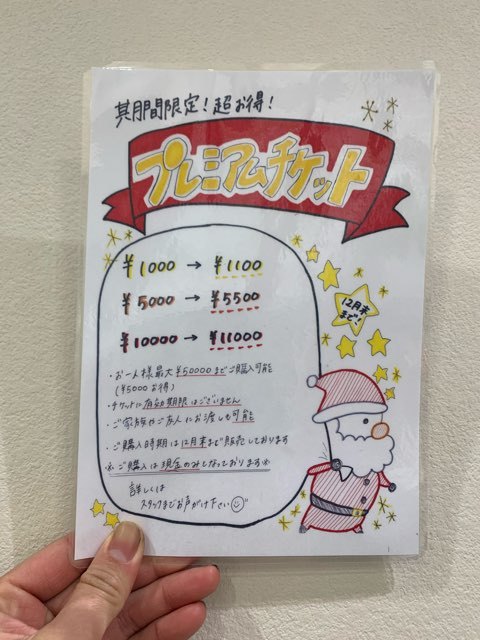 期間限定！超お得！
プレミアムチケット
¥1000 → ¥1100
¥5000 → ¥5500
¥10000 → ¥11000
12月末
まで！
・お一人様最大 ¥50000までご購入可能
(¥5000お得)
・チケットに有効期限はございません
・ご家族やご友人にお渡しも可能
・ご購入時期は12月末まで販売しております
※ご購入は現金のみとなっております※
詳しくは
スタッフまでお声がけ下さい